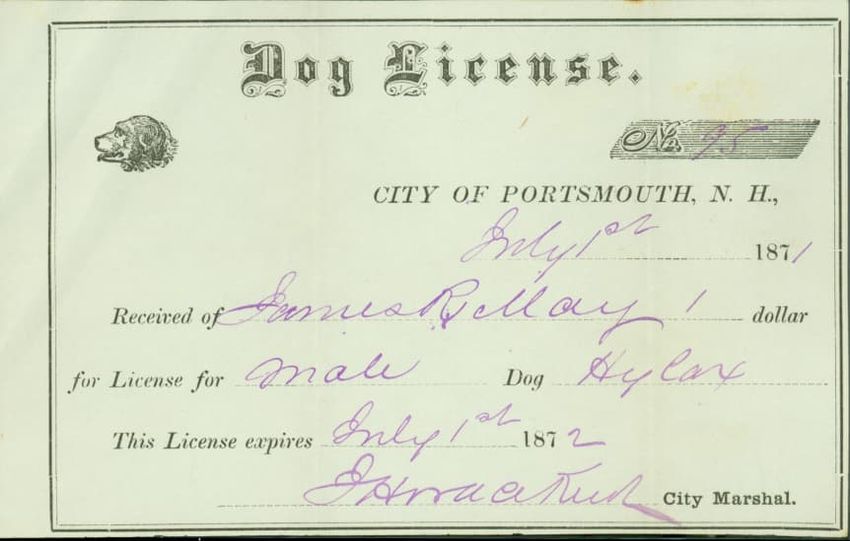 Dog License.
No. 95
CITY OF PORTSMOUTH, N. H.,
July 1st 1871
Received of James R. May 1 dollar
for License for male Dog Hylax
This License expires July 1st 1872
City Marshal.